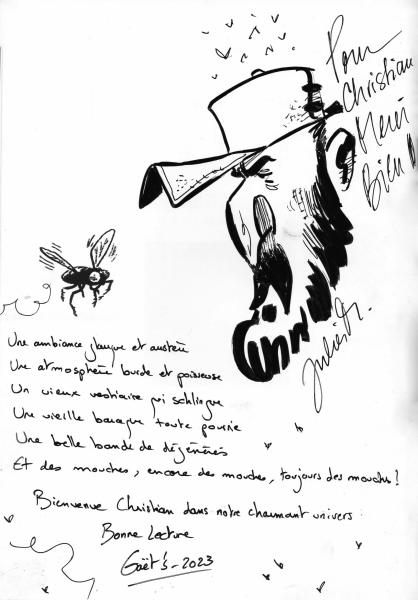 Pour
Christian
Merci
Bien !
Une ambiance glauque et austère
Une atmosphère lourde et poisseuse
Un vieux vestiaire qui schlingue
Une vieille baraque toute pourrie
Une belle bande de dégénérés
Et des mouches, encore des mouches, toujours des mouches !
Bienvenue Christian dans notre charmant univers
Bonne Lecture
Gaët's - 2023